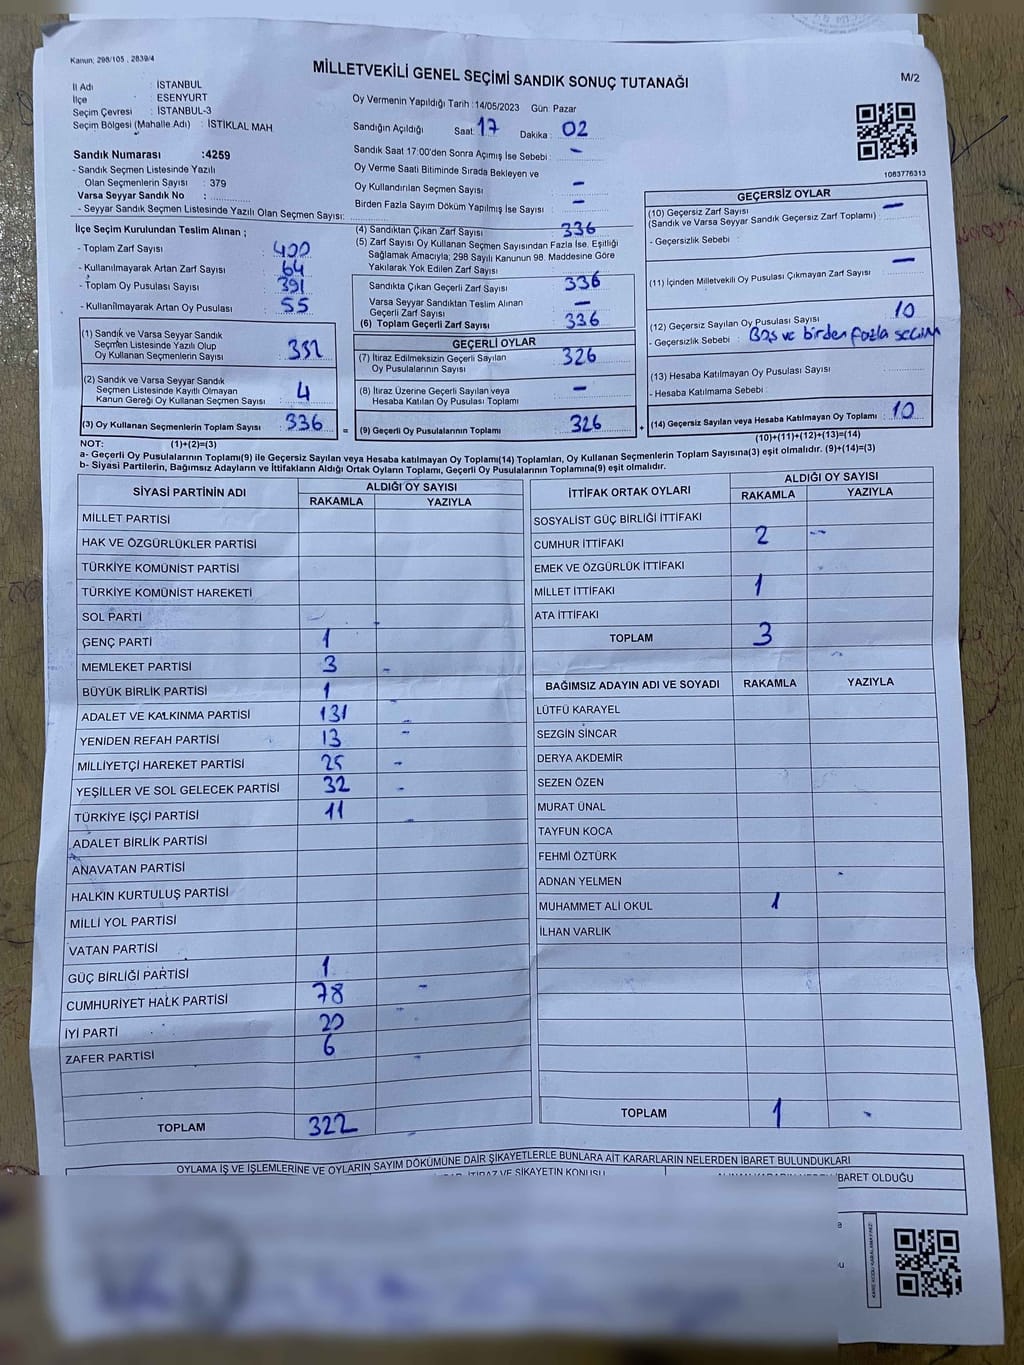 Kanun; 298/105 , 2839/4
MİLLETVEKİLİ GENEL SEÇİMİ SANDIK SONUÇ TUTANAĞI
M/2
İl Adı : İSTANBUL
İlçe : ESENYURT
Seçim Çevresi : İSTANBUL-3
Seçim Bölgesi (Mahalle Adı) : İSTİKLAL MAH
Oy Vermenin Yapıldığı Tarih :14/05/2023 Gün: Pazar
Sandığın Açıldığı Saat: 17 Dakika : 02
Sandık Saat 17:00'den Sonra Açımış İse Sebebi : -
Oy Verme Saati Bitiminde Sırada Bekleyen ve
Oy Kullandırılan Seçmen Sayısı -
Birden Fazla Sayım Döküm Yapılmış İse Sayısı : -
Sandık Numarası :4259
- Sandık Seçmen Listesinde Yazılı
Olan Seçmenlerin Sayısı : 379
Varsa Seyyar Sandık No :
- Seyyar Sandık Seçmen Listesinde Yazılı Olan Seçmen Sayısı:
1083776313
İlçe Seçim Kurulundan Teslim Alınan ;
- Toplam Zarf Sayısı : 400
- Kullanılmayarak Artan Zarf Sayısı : 64
- Toplam Oy Pusulası Sayısı : 391
- Kullanılmayarak Artan Oy Pusulası : 55
(1) Sandık ve Varsa Seyyar Sandık
Seçmen Listesinde Yazılı Olup
Oy Kullanan Seçmenlerin Sayısı 332
(2) Sandık ve Varsa Seyyar Sandık
Seçmen Listesinde Kayıtlı Olmayan
Kanun Gereği Oy Kullanan Seçmen Sayısı 4
(3) Oy Kullanan Seçmenlerin Toplam Sayısı : 336
(4) Sandıktan Çıkan Zarf Sayısı 336
(5) Zarf Sayısı Oy Kullanan Seçmen Sayısından Fazla İse, Eşitliği
Sağlamak Amacıyla; 298 Sayılı Kanunun 98. Maddesine Göre
Yakılarak Yok Edilen Zarf Sayısı
Sandıkta Çıkan Geçerli Zarf Sayısı 336
Varsa Seyyar Sandıktan Teslim Alınan
Geçerli Zarf Sayısı -
(6) Toplam Geçerli Zarf Sayısı 336
GEÇERLİ OYLAR
(7) İtiraz Edilmeksizin Geçerli Sayılan
Oy Pusulalarının Sayısı 326
(8) İtiraz Üzerine Geçerli Sayılan veya
Hesaba Katılan Oy Pusulası Toplamı -
= (9) Geçerli Oy Pusulalarının Toplamı 326
GEÇERSİZ OYLAR
(10) Geçersiz Zarf Sayısı -
(Sandık ve Varsa Seyyar Sandık Geçersiz Zarf Toplamı)
- Geçersizlik Sebebi :
(11) İçinden Milletvekili Oy Pusulası Çıkmayan Zarf Sayısı -
(12) Geçersiz Sayılan Oy Pusulası Sayısı 10
- Geçersizlik Sebebi : Boş ve birden fazla seçim
(13) Hesaba Katılmayan Oy Pusulası Sayısı
- Hesaba Katılmama Sebebi :
+ (14) Geçersiz Sayılan veya Hesaba Katılmayan Oy Toplamı : 10
NOT: (1)+(2)=(3)
(10)+(11)+(12)+(13)=(14)
a- Geçerli Oy Pusulasının Toplamı(9) ile Geçersiz Sayılan veya Hesaba katılmayan Oy Toplamı(14) Toplamları, Oy Kullanan Seçmenlerin Toplam Sayısına(3) eşit olmalıdır. (9)+(14)=(3)
b- Siyasi Partilerin, Bağımsız Adayların ve İttifakların Aldığı Ortak Oyların Toplamı, Geçerli Oy Pusulalarının Toplamına(9) eşit olmalıdır.
SİYASİ PARTİNİN ADI ALDIĞI OY SAYISI
RAKAMLA YAZIYLA
MİLLET PARTİSİ
HAK VE ÖZGÜRLÜKLER PARTİSİ
TÜRKİYE KOMÜNİST PARTİSİ
TÜRKİYE KOMÜNİST HAREKETİ
SOL PARTİ
GENÇ PARTİ 1
MEMLEKET PARTİSİ 3
BÜYÜK BİRLİK PARTİSİ 1
ADALET VE KALKINMA PARTİSİ 131
YENİDEN REFAH PARTİSİ 13
MİLLİYETÇİ HAREKET PARTİSİ 25
YEŞİLLER VE SOL GELECEK PARTİSİ 32
TÜRKİYE İŞÇİ PARTİSİ 11
ADALET BİRLİK PARTİSİ
ANAVATAN PARTİSİ
HALKIN KURTULUŞ PARTİSİ
MİLLİ YOL PARTİSİ
VATAN PARTİSİ
GÜÇ BİRLİĞİ PARTİSİ 1
CUMHURİYET HALK PARTİSİ 78
İYİ PARTİ 20
ZAFER PARTİSİ 6
TOPLAM 322
İTTİFAK ORTAK OYLARI ALDIĞI OY SAYISI
RAKAMLA YAZIYLA
SOSYALİST GÜÇ BİRLİĞİ İTTİFAKI
CUMHUR İTTİFAKI 2
EMEK VE ÖZGÜRLÜK İTTİFAKI
MİLLET İTTİFAKI 1
ATA İTTİFAKI
TOPLAM 3
BAĞIMSIZ ADAYIN ADI VE SOYADI RAKAMLA YAZIYLA
LÜTFÜ KARAYEL
SEZGİN SİNCAR
DERYA AKDEMİR
SEZEN ÖZEN
MURAT ÜNAL
TAYFUN KOCA
FEHMİ ÖZTÜRK
ADNAN YELMEN
MUHAMMET ALİ OKUL 1
İLHAN VARLIK
TOPLAM 1
OYLAMA İŞ VE İŞLEMLERİNE VE OYLARIN SAYIM DÖKÜMÜNE DAİR ŞİKAYETLERLE BUNLARA AİT KARARLARIN NELERDEN İBARET BULUNDUKLARI
İTİRAZ VE ŞİKAYETİN KONUSU
İBARET OLDUĞU